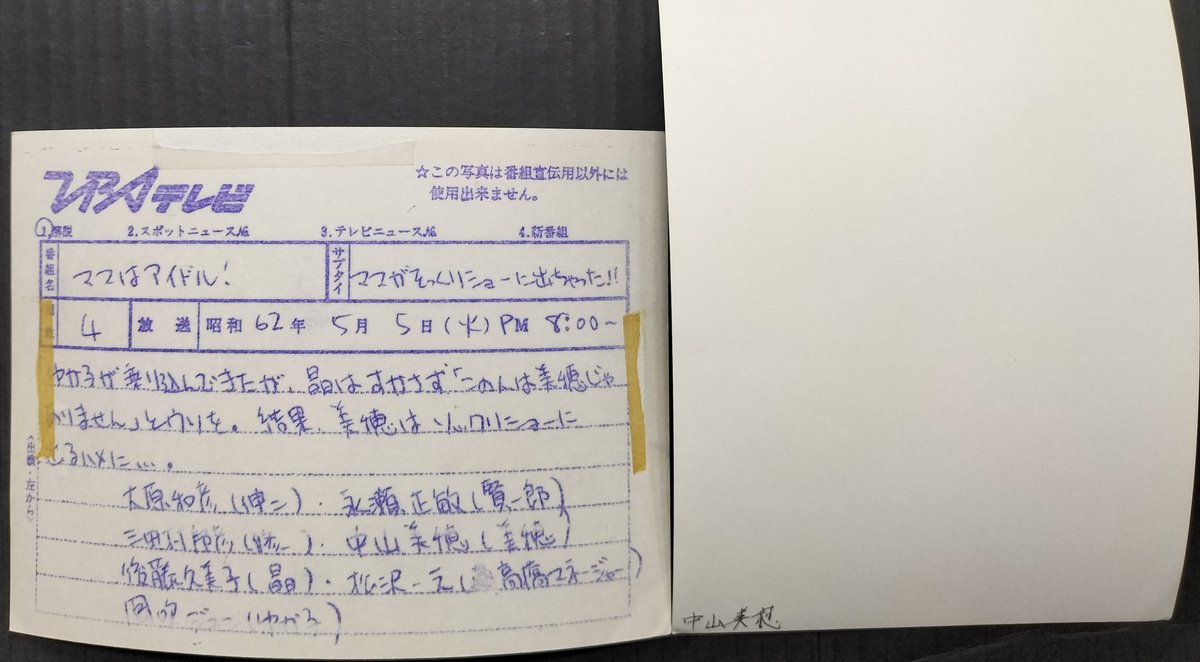 TBAテレビ
☆この写真は番組宣伝用以外には
使用出来ません。
1.解説 2.スポットニュース№ 3.テレビニュース№ 4.新番組
番組名 ママはアイドル! サブタイ ママがそっくりショーに出ちゃった!!
回数 4 放送 昭和62年 5月 5日(火) PM 8:00~
わか子が乗り込んできたが、晶はすかさず「この人は美穂じゃ
ありません」とウソを。結果、美穂はソックリショーに
出るハメに…。
(左から)
大原和彦(伸二)・永瀬正敏(賢一郎)
三田村邦彦(修一)・中山美穂(美穂)
後藤久美子(晶)・松沢一之(高腐マネージャー)
(わか子)
中山美穂